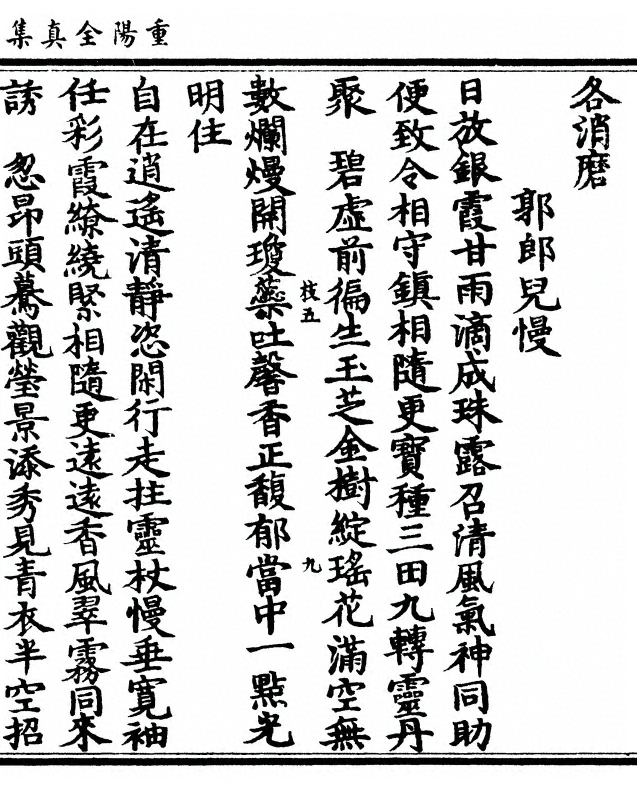 重陽全真集
各消磨
郭郎兒慢
日放銀霞甘雨滴成珠露召清風氣神同助
便致令相守鎮相隨更寶種三田九轉靈丹
聚　碧虛前徧生玉芝金樹綻瑤花滿空無
數爛熳開瓊蘂吐馨香正馥郁當中一點光
枝五
九
明住
自在逍遙清靜恣閑行走拄靈杖慢垂寬袖
任彩霞繚繞緊相隨更遠遠香風翠霧同來
誘　忽昂頭驀觀瑩景添秀見青衣半空招